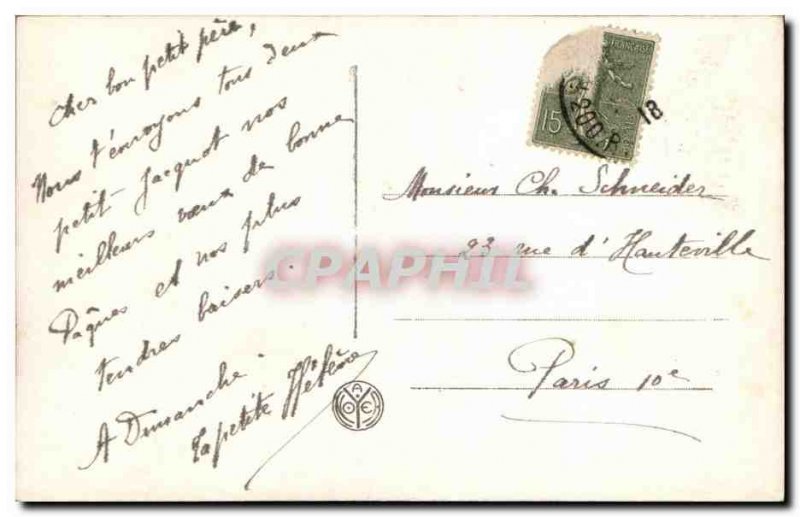 Cher bon petit père,
Nous t'envoyons tous deux
petit Jacquot nos
meilleurs vœux de bonne
Pâques et nos plus
tendres baisers.
A Dimanche.
Ta petite Hélène
FRANÇAISE
15
18
Monsieur Ch. Schneider
23 rue d'Hauteville
Paris 10e
CPAPHIL